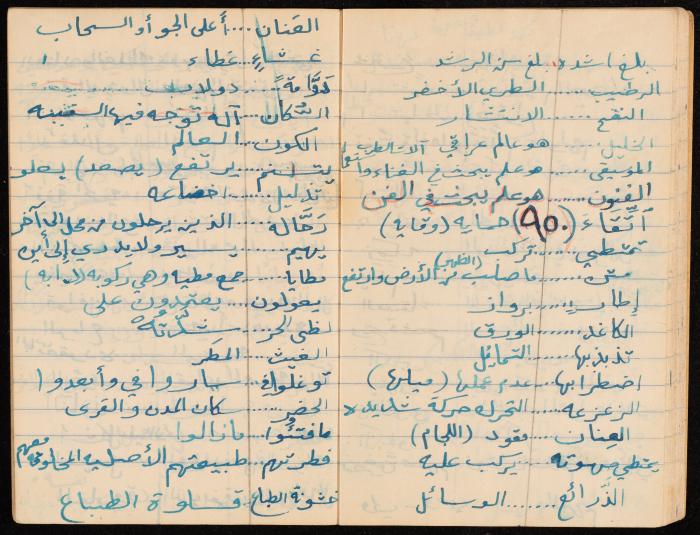 بلغ اشده بلغ سن الرشد
الرطيب ...... الطري الأخضر
النفح ...... الانتشار
الخليل .... هو عالم عراقي
الموسيقى .... هو علم يبحث في الغناء و آلات الطرب
الفنون ...... هو علم يبحث في الفن
اتِّقَاءَ (٩٠) حمايه (وقايه)
تمتطي ..... تركب
متن .... ما صلب من الأرض وارتفع (الظهر)
إطار .... برواز
الكاغد ...... الورق
تذبذبها ...... التمايل
اضطرابها ... عدم عملها
الزعزعه ..... التحرك حركة شديده
العِنان .... مقود (اللجام)
يمتطي صهوته .... يركب عليه
الذَّرائع ....... الوسائل
العَنان .... أعلى الجو أو السحاب
غشاء .... غطاء
دوَّامةً ..... دولاب
السُّكان ... آله توجه فيها السفينه
الكون ..... العالم
يتسنم .... يرتفع (يصعد) يعلو
تذليل ..... اخضاعه
رَحَّالة .... الذين يرحلون من محل الى آخر
يهيم .... يسير ولا يدري إلى أين
مطايا .... جمع مطيه وهي ركوبه (الدابه)
يعولون .... يعتمدون على
لظى الحر .... شدَّته
الغيث .... المطر
توغلوا .... ساروا في وأبعدوا
الحضر ..... سكان المدن والقرى
ما فتئوا .... ما زالوا
فطرتهم ... طبيعتهم الأصليه المخلوقه معهم
خشونة الطباع .. قساوة الطباع